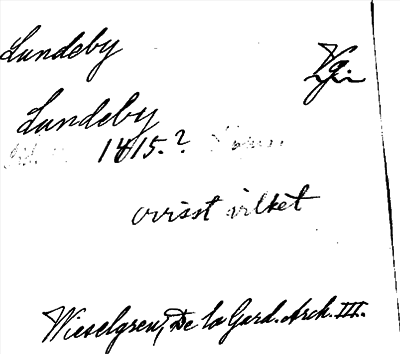 Lundeby
Lundeby
1415.?
ovisst vilket
Wieselgren, De la Gard. Arch. III.